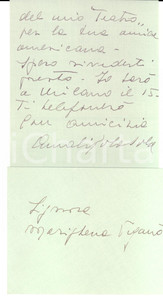 del mio "Teatro",
per la tua amica
americana -
Spero rivederti
presto. Io sarò
a Milano il 15.
Ti telefonerò
Con amicizia
Signora
Marighena Viganò